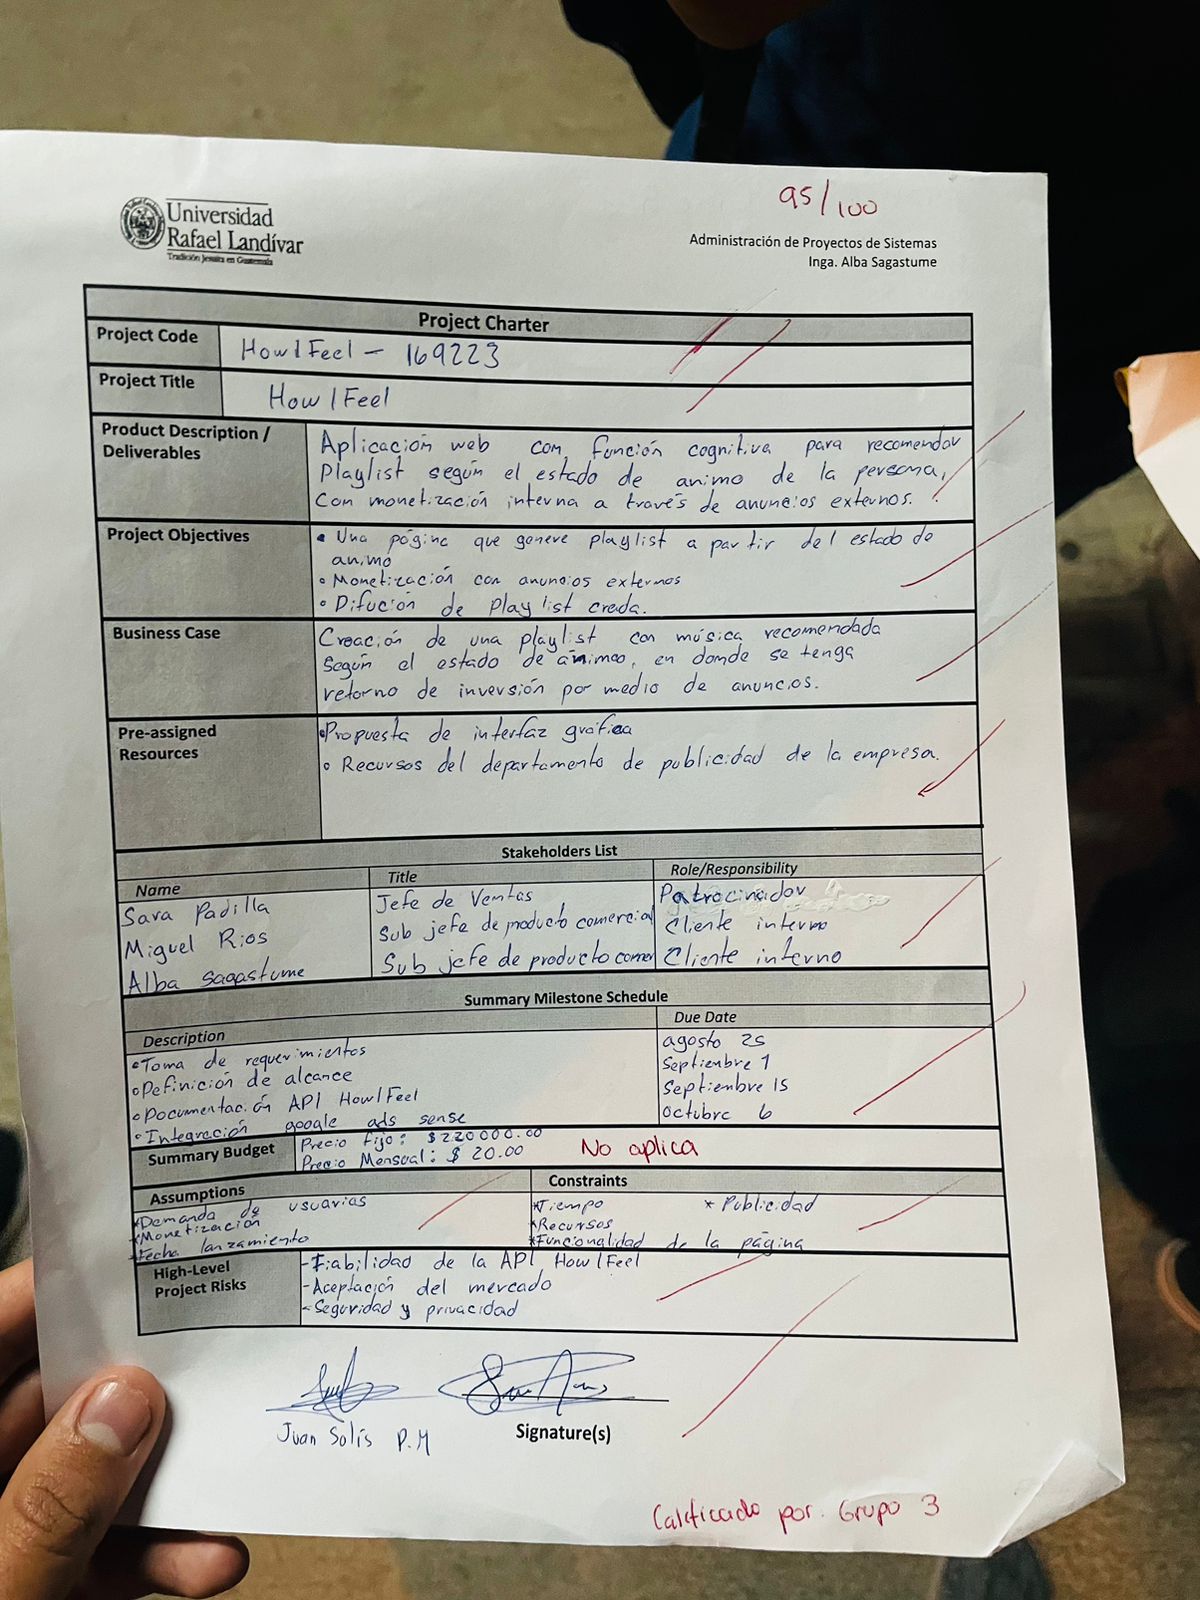 95/100
Universidad
Rafael Landívar
Tradición Jesuita en Guatemala
Administración de Proyectos de Sistemas
Inga. Alba Sagastume
Project Charter
Project Code
HowIFeel - 169223
Project Title
HowIFeel
Product Description /
Deliverables
Aplicación web con función cognitiva para recomendar
Playlist según el estado de animo de la persona,
Con monetización interna a través de anuncios externos.
Project Objectives
• Una página que genere playlist a partir del estado de
animo
• Monetización con anuncios externos
• Difución de Playlist creada.
Business Case
Creación de una playlist con música recomendada
Según el estado de ánimo, en donde se tenga
retorno de inversión por medio de anuncios.
Pre-assigned
Resources
• Propuesta de interfaz gráfica
• Recursos del departamento de publicidad de la empresa.
Stakeholders List
Name Title Role/Responsibility
Sara Padilla Jefe de Ventas Patrocinador
Miguel Rios Sub jefe de producto comercial Cliente interno
Alba Sagastume Sub jefe de producto comer Cliente interno
Summary Milestone Schedule
Description Due Date
• Toma de requerimientos agosto 25
• Definición de alcance Septiembre 1
• Documentación API HowIFeel Septiembre 15
• Integración google ads sense Octubre 6
Summary Budget
Precio fijo: $220000.00
Precio Mensual: $ 20.00
No aplica
Assumptions
* Demanda de usuarias
* Monetización
* Fecha lanzamiento
Constraints
* Tiempo * Publicidad
* Recursos
* Funcionalidad de la página
High-Level
Project Risks
- Fiabilidad de la API HowIFeel
- Aceptación del mercado
- Seguridad y privacidad
Juan Solís P.M
Signature(s)
Calificado por. Grupo 3